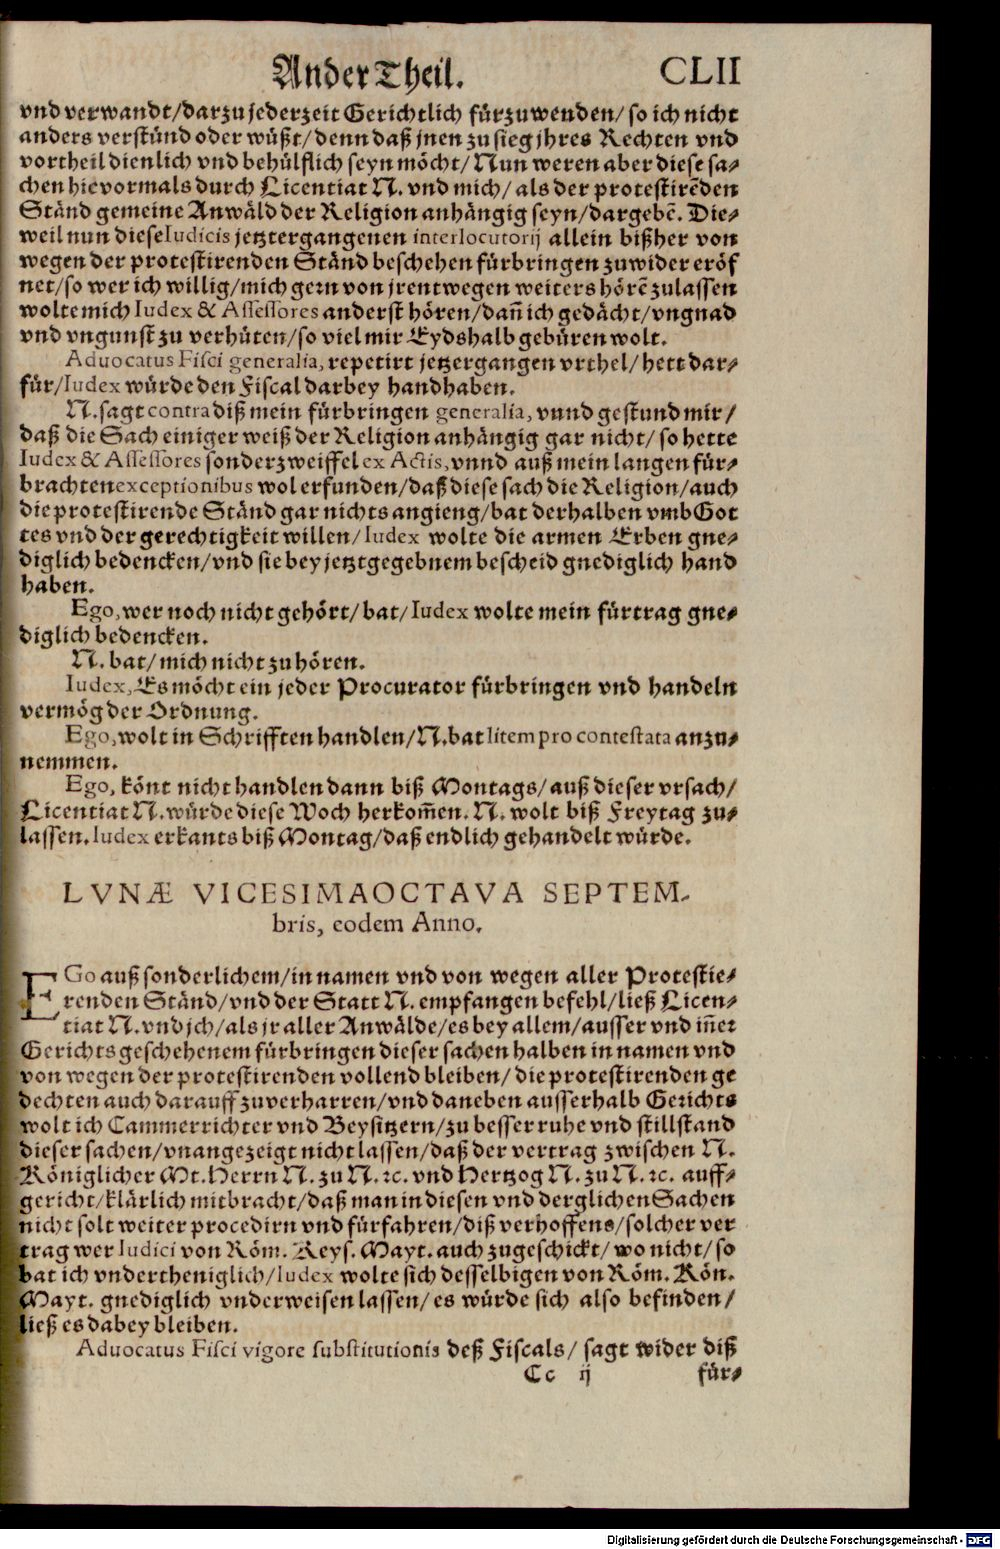 Ander Theil. CLII
vnd verwandt/ darzu jederzeit Gerichtlich fürzuwenden/ so ich nicht
anders verstünd oder wüßt/ denn daß jnen zu sieg jhres Rechten vnd
vortheil dienlich vnd behülflich seyn möcht/ Nun weren aber diese sa-
chen hievormals durch Licentiat N. vnd mich/ als der protestirẽden
Ständ gemeine Anwäld der Religion anhängig seyn/ dargebẽ. Die-
weil nun diese Iudicis jetztergangenen interlocutorij allein bißher von
wegen der protestirenden Ständ beschehen fürbringen zuwider eröf
net/ so wer ich willig/ mich gern von jrentwegen weiters hörẽ zulassen
wolte mich Iudex & Assessores anderst hören/ dañ ich gedächt/ vngnad
vnd vngunst zu verhüten/ so viel mir Eydshalb gebüren wolt.
Advocatus Fisci generalia, repetirt jetzergangen vrthel/ hett dar-
für/ Iudex würde den Fiscal darbey handhaben.
N. sagt contra diß mein fürbringen generalia, vnnd gestund mir/
daß die Sach einiger weiß der Religion anhängig gar nicht/ so hette
Iudex & Assessores sonder zweiffel ex Actis, vnnd auß mein langen für-
brachten exceptionibus wol erfunden/ daß diese sach die Religion/ auch
die protestirende Ständ gar nichts angieng/ bat derhalben vmb Got
tes vnd der gerechtigkeit willen/ Iudex wolte die armen Erben gne-
diglich bedencken/ vnd sie bey jetztgegebnem bescheid gnediglich hand
haben.
Ego, wer noch nicht gehört/ bat/ Iudex wolte mein fürtrag gne-
diglich bedencken.
N. bat/ mich nicht zu hören.
Iudex, Es möcht ein jeder Procurator fürbringen vnd handeln
vermög der Ordnung.
Ego, wolt in Schrifften handlen/ N. bat litem pro contestata anzu-
nemmen.
Ego, könt nicht handlen dann biß Montags/ auß dieser vrsach/
Licentiat N. würde diese Woch herkom̃en. N. wolt biß Freytag zu-
lassen. Iudex erkants biß Montag/ daß endlich gehandelt würde.
LVNÆ VICESIMAOCTAVA SEPTEM-
bris, eodem Anno.
EGo auß sonderlichem/ in namen vnd von wegen aller Protestie-
renden Ständ/ vnd der Statt N. empfangen befehl/ ließ Licen-
tiat N. vnd jch/ als jr aller Anwälde/ es bey allem/ ausser vnd iñer
Gerichts geschehenem fürbringen dieser sachen halben in namen vnd
von wegen der protestirenden vollend bleiben/ die protestirenden ge
dechten auch darauff zuverharren/ vnd daneben ausserhalb Gerichts
wolt ich Cammerrichter vnd Beysitzern/ zu besser ruhe vnd stillstand
dieser sachen/ vnangezeigt nicht lassen/ daß der vertrag zwischen N.
Königlicher Mt. Herrn N. zu N. ꝛc. vnd Hertzog N. zu N. ꝛc. auff-
gericht/ klärlich mitbracht/ daß man in diesen vnd derglichen Sachen
nicht solt weiter procedirn vnd fürfahren/ diß verhoffens/ solcher ver
trag wer Iudici von Röm. Keys. Mayt. auch zugeschickt/ wo nicht/ so
bat ich vndertheniglich/ Iudex wolte sich desselbigen von Röm. Kön.
Mayt. gnediglich vnderweisen lassen/ es würde sich also befinden/
ließ es dabey bleiben.
Advocatus Fisci vigore substitutionis deß Fiscals/ sagt wider diß
Cc ij für-
Digitalisierung gefördert durch die Deutsche Forschungsgemeinschaft - DFG